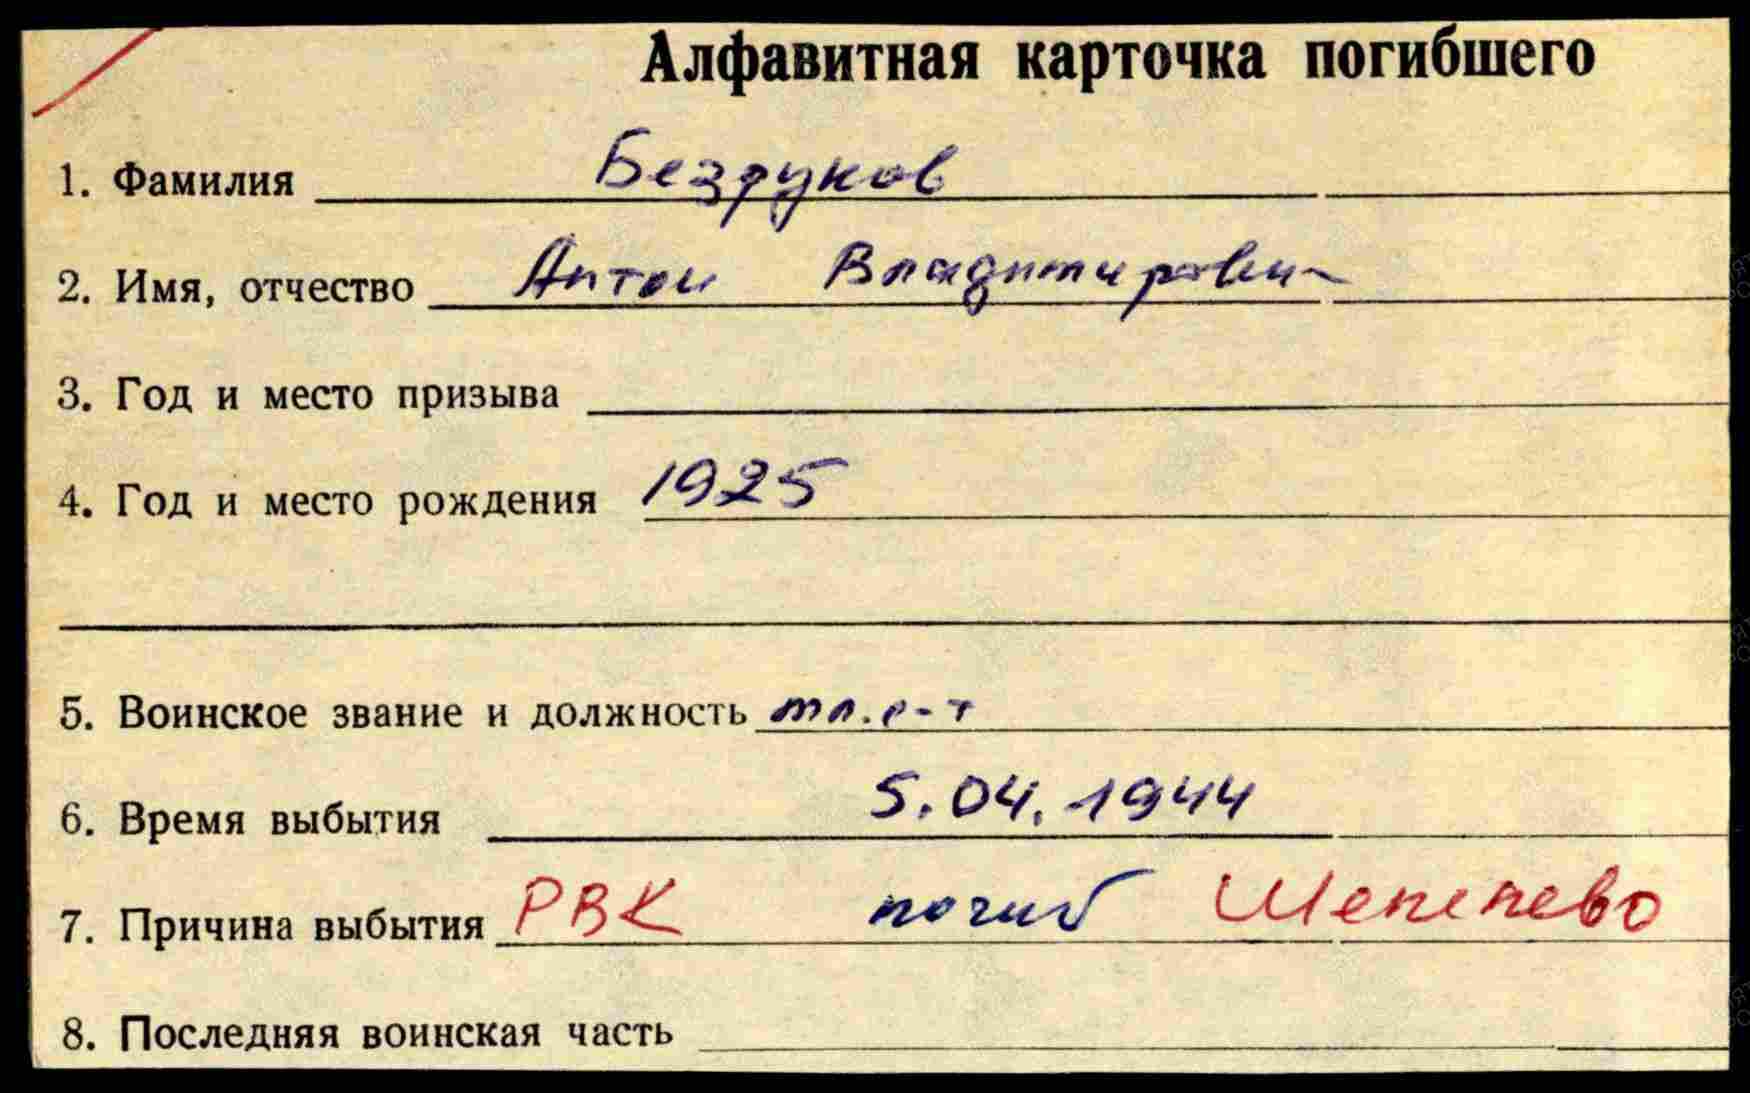 Алфавитная карточка погибшего
1. Фамилия Безруков
2. Имя, отчество Антон Владимирович
3. Год и место призыва
4. Год и место рождения 1925
5. Воинское звание и должность мл. с-т
6. Время выбытия 5.04.1944
7. Причина выбытия РВК погиб Шепелево
8. Последняя воинская часть